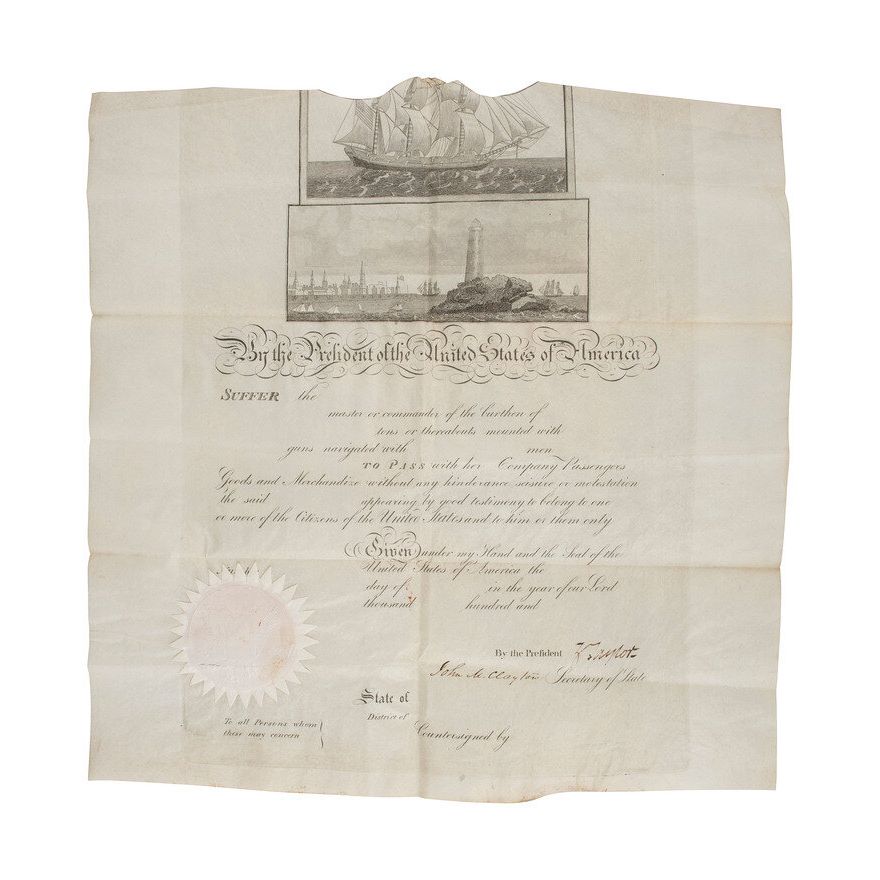 By the President of the United States of America
SUFFER the
master or commander of the burthen of
tons or thereabouts mounted with
guns navigated with men
TO PASS with her Company Passengers
Goods and Merchandize without any hinderance seisure or molestation
the said appearing by good testimony to belong to one
or more of the Citizens of the United States and to him or them only
Given under my Hand and the Seal of the
United States of America the
day of in the year of our Lord
thousand hundred and
By the President Z. Taylor
John M. Clayton Secretary of State
State of
District of
To all Persons whom
these may concern
Countersigned by